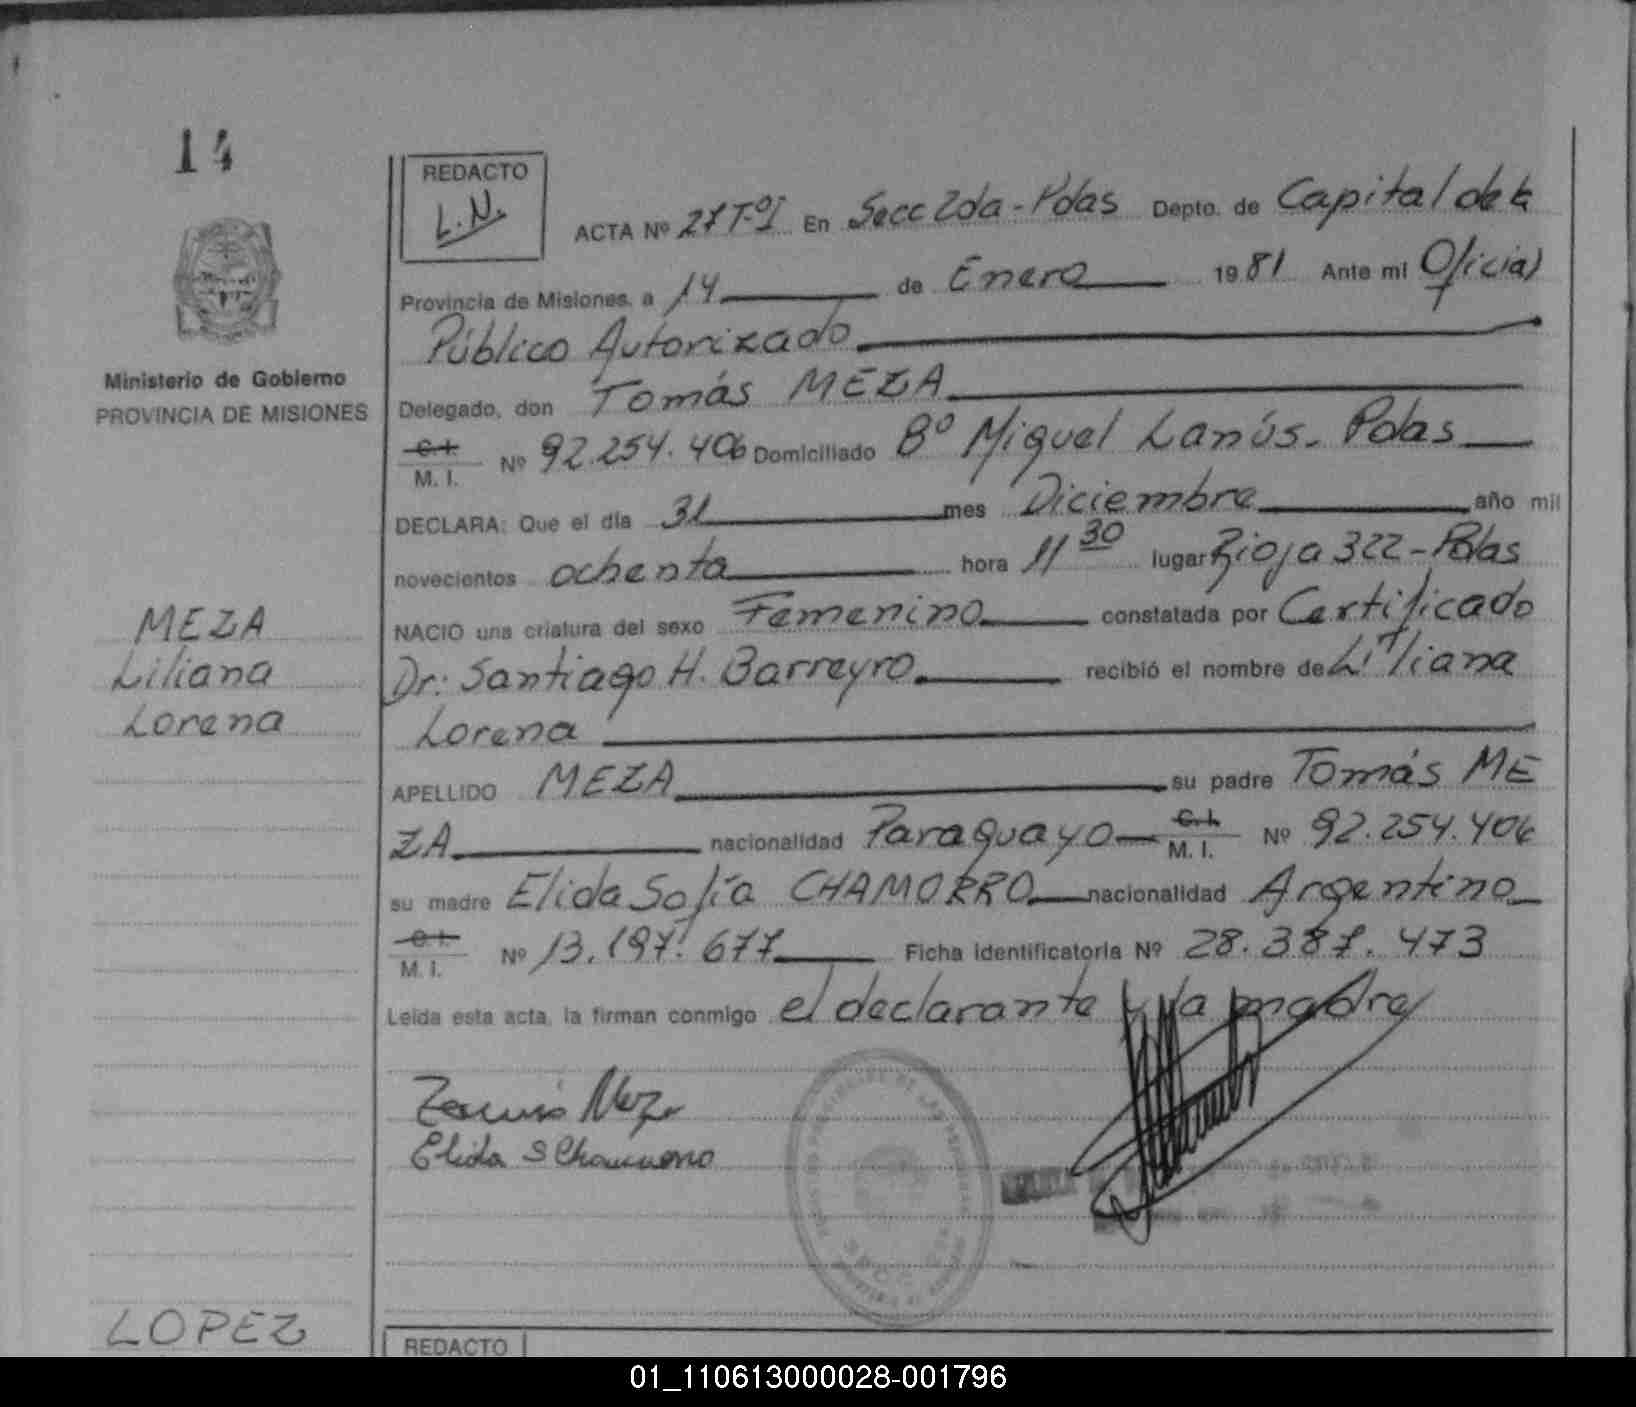 14
REDACTO
L.N.
ACTA Nº 27 Tº I En Secc 2da - Pdas Depto. de Capital de la
Provincia de Misiones, a 14 de Enero 1981 Ante mi Oficial
Público Autorizado
Delegado, don Tomás MEZA
C.I.
M. I. Nº 92.254.406 Domiciliado Bº Miguel Lanús - Pdas
DECLARA: Que el día 31 mes Diciembre año mil
novecientos ochenta hora 11 30 lugar Rioja 322 - Pdas
NACIO una criatura del sexo Femenino constatada por Certificado
Dr: Santiago H. Barreyro recibió el nombre de Liliana
Lorena
APELLIDO MEZA su padre Tomás ME
ZA nacionalidad Paraguayo C.I.
M. I. Nº 92.254.406
su madre Elida Sofía CHAMORRO nacionalidad Argentino
C.I.
M. I. Nº 13.197.677 Ficha identificatoria Nº 28.387.473
Leída esta acta, la firman conmigo el declarante y la madre
Tomás Meza
Elida S Chamorro
Ministerio de Gobierno
PROVINCIA DE MISIONES
MEZA
Liliana
Lorena
LOPEZ
REDACTO
01_110613000028-001796